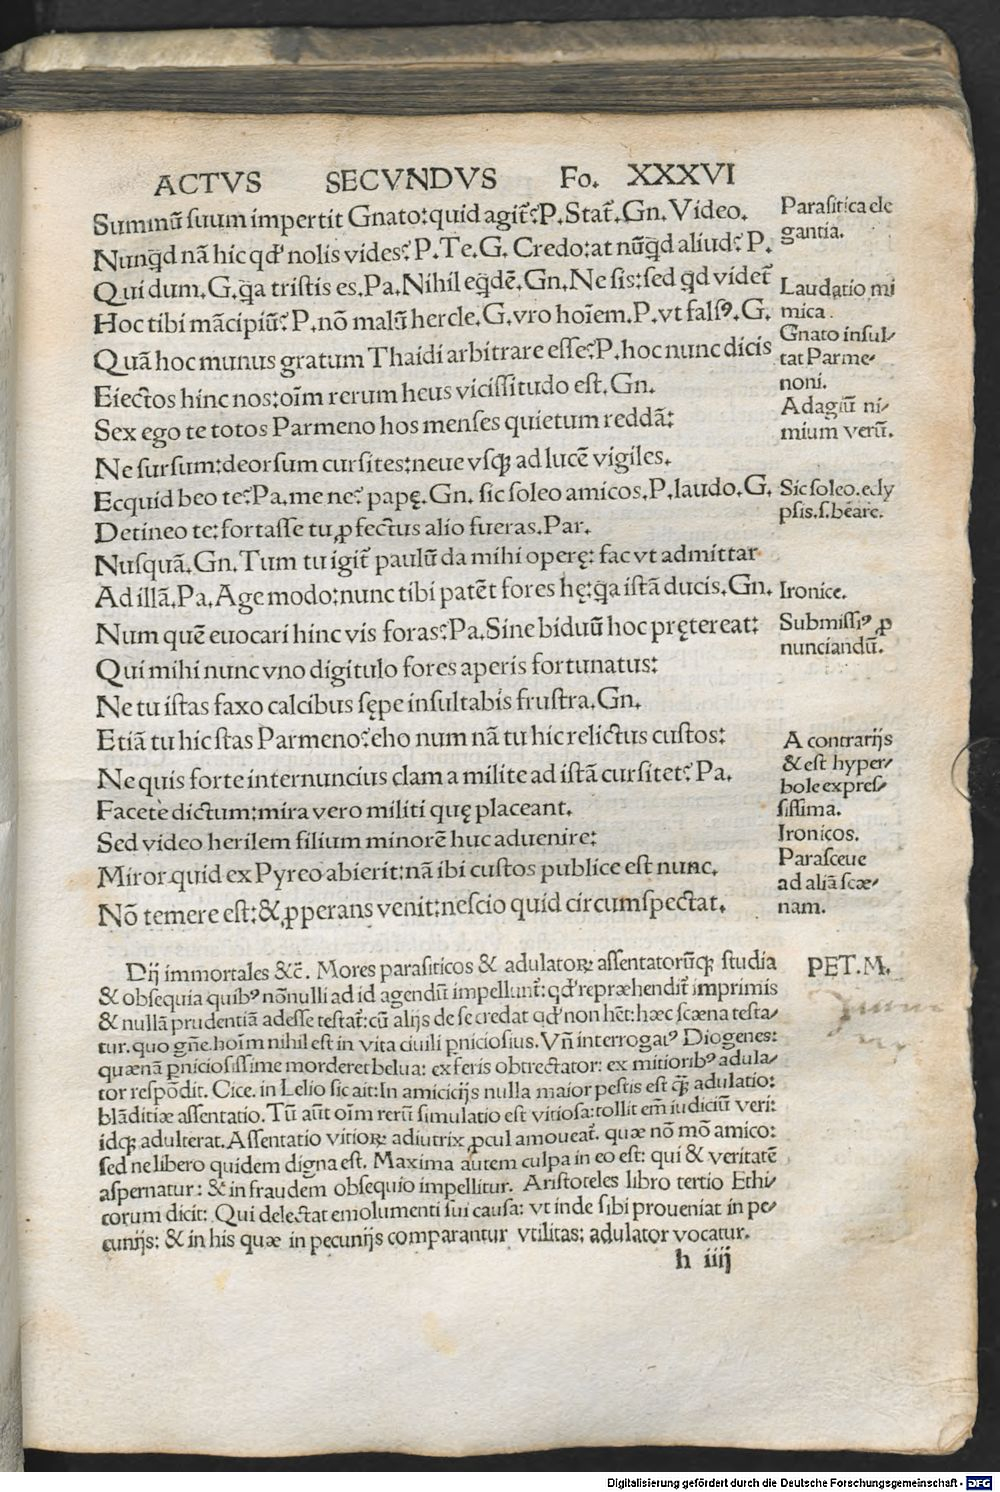 ACTVS SECVNDVS Fo. XXXVI
Summũ suum impertit Gnato: quid agit̃? P. Stat̃. Gn. Video.
Nunq̃d nã hic qd' nolis vides? P. Te. G. Credo: at nũq̃d aliud? P.
Qui dum. G. q̃a tristis es. Pa. Nihil eq̃dẽ. Gn. Ne sis: sed qd videt̃
Hoc tibi mãcipiũ? P. nõ malũ hercle. G. vro hoĩem. P. vt falsꝰ. G.
Quã hoc munus gratum Thaidi arbitrare esse? P. hoc nunc dicis
Eiectos hinc nos: oĩm rerum heus vicissitudo est. Gn.
Sex ego te totos Parmeno hos menses quietum reddã:
Ne sursum: deorsum cursites: neue vsqꝫ ad lucẽ vigiles.
Ecquid beo te? Pa. me ne? papę. Gn. sic soleo amicos. P. laudo. G.
Detineo te: fortasse tu ꝓfectus alio fueras. Par.
Nusquã. Gn. Tum tu igit̃ paulũ da mihi operę: fac vt admittar
Ad illã. Pa. Age modo: nunc tibi patẽt fores hę: q̃a istã ducis. Gn.
Num quẽ euocari hinc vis foras? Pa. Sine biduũ hoc prętereat:
Qui mihi nunc vno digitulo fores aperis fortunatus:
Ne tu istas faxo calcibus sępe insultabis frustra. Gn.
Etiã tu hic stas Parmeno? eho num nã tu hic relictus custos:
Ne quis forte internuncius clam a milite ad istã cursitet? Pa.
Facete dictum: mira vero militi quę placeant.
Sed video herilem filium minorẽ huc aduenire:
Miror quid ex Pyreo abierit: nã ibi custos publice est nunc.
Nõ temere est: & ꝓperans venit: nescio quid circumspectat.
Parasitica ele
gantia.
Laudatio mi
mica.
Gnato insul-
tat Parme-
noni.
Adagiũ ni-
mium verũ.
Sic soleo. ecly
psis. s. beare.
Ironice.
Submissiꝰ ꝓ
nunciandũ.
A contrarijs
& est hyper-
bole expres-
sissima.
Ironicos.
Parasceue
ad aliã scæ-
nam.
PET. M.
Dij immortales &c̃. Mores parasiticos & adulatoꝝ assentatorũqꝫ studia
& obsequia quibꝰ nõnulli ad id agendũ impellunt̃: qd' repræhendit̃ imprimis
& nullã prudentiã adesse testat̃: cũ alijs de se credat qd' non hẽt: hæc scæna testa-
tur. quo gñe. hoĩm nihil est in vita ciuili ꝑniciosius. Vñ interrogatꝰ Diogenes:
quænã ꝑniciosissime morderet belua: ex feris obtrectator: ex mitioribꝰ adula-
tor respõdit. Cice. in Lelio sic ait: In amicicijs nulla maior pestis est q̃ꝫ adulatio:
blãditiæ assentatio. Tũ aũt oĩm rerũ simulatio est vitiosa: tollit em̃ iudiciũ veri:
idqꝫ adulterat. Assentatio vitioꝝ adiutrix ꝓcul amoueat̃. quæ nõ mõ amico:
sed ne libero quidem digna est. Maxima autem culpa in eo est: qui & veritatẽ
aspernatur: & in fraudem obsequio impellitur. Aristoteles libro tertio Ethi-
corum dicit: Qui delectat emolumenti sui causa: vt inde sibi proueniat in pe-
cunijs: & in his quæ in pecunijs comparantur vtilitas; adulator vocatur.
h iiij
Digitalisierung gefördert durch die Deutsche Forschungsgemeinschaft - DFG